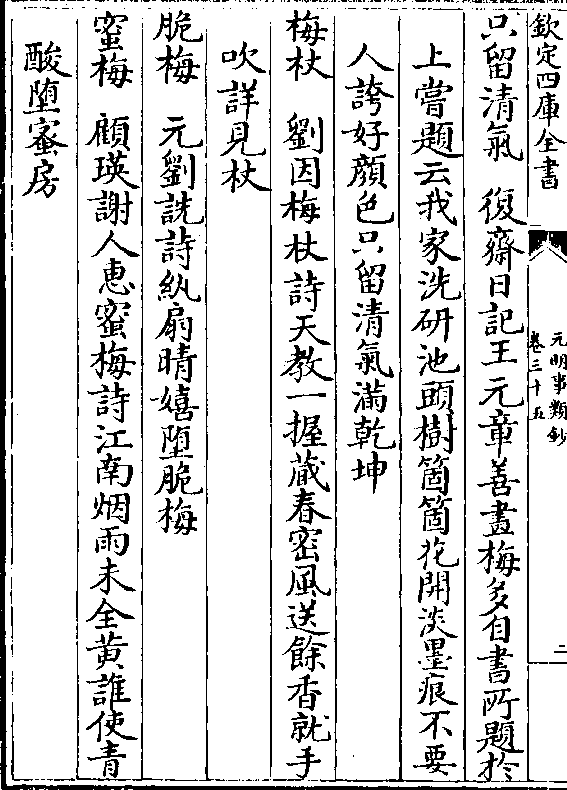 欽定四庫全書
元明事類鈔
卷三十五
二
只留清氣　復齋日記王元章善畫梅多自書所題於
上嘗題云我家洗研池頭樹箇箇花開淡墨痕不要
人誇好顔色只留清氣滿乾坤
梅杖　劉因梅杖詩天教一握蔵春密風送餘香就手
吹詳見杖
脆梅　元劉詵詩紈扇晴嬉墮脆梅
蜜梅　顧瑛謝人惠蜜梅詩江南烟雨未全黄誰使青
酸墮蜜房